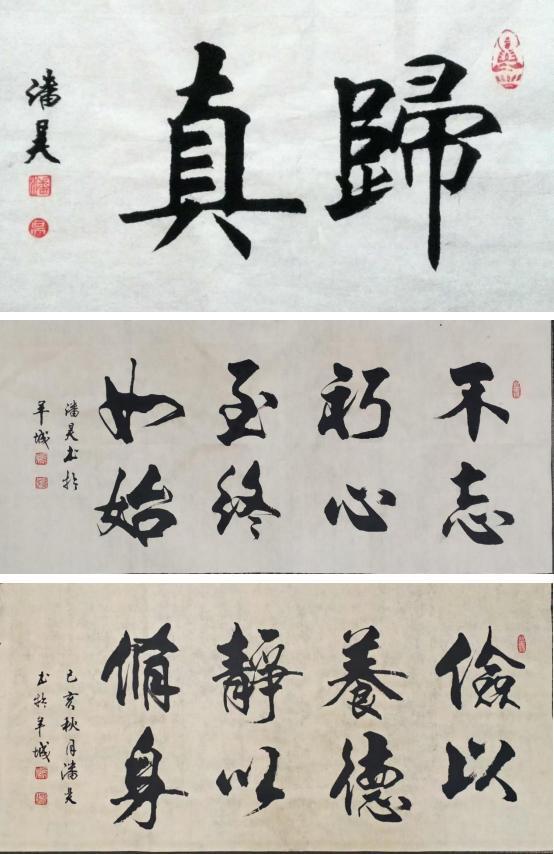 歸真
潘昊
不忘
初心
至終
如始
潘昊书於
羊城
儉以
養德
靜以
脩身
己亥秋月潘昊
书於羊城